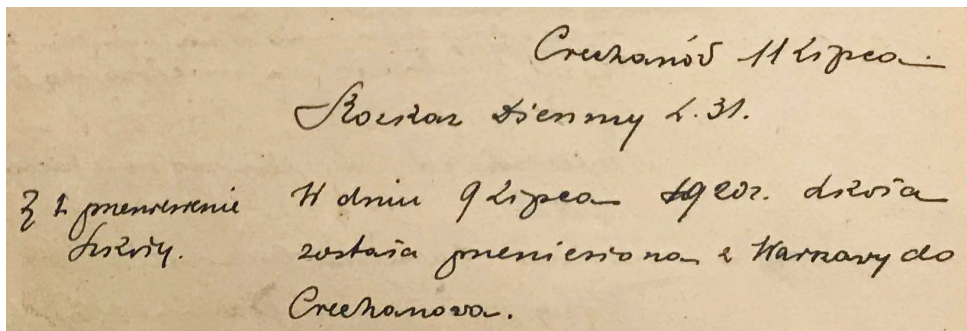 Ciechanów 11 Lipca.
Rozkaz Dzienny L. 31.
§ 1 przeniesienie
Szkoły.
W dniu 9 Lipca 1920r. szkoła
została przeniesiona z Warszawy do
Ciechanowa.